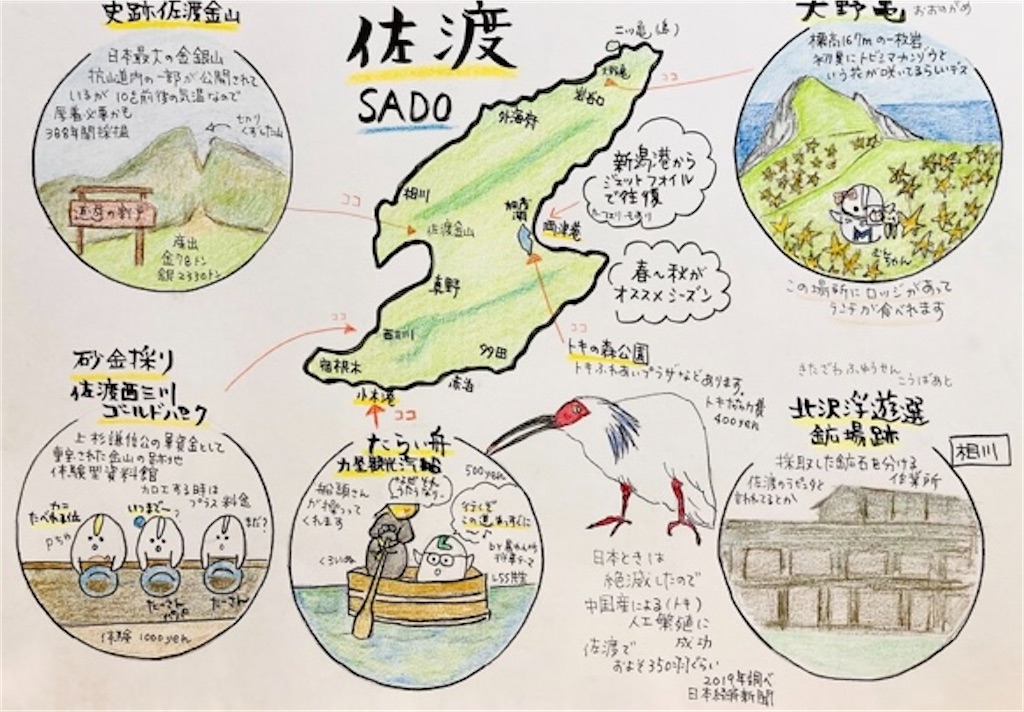 史跡佐渡金山
日本最大の金銀山
坑山道内の一部が公開されて
いるが10℃前後の気温なので
厚着必要かも
388年間採掘
セカリ
くずした山
道遊の割戸
産出
金78トン
銀2330トン
佐渡
SADO
二ツ亀(島)
大野亀
ココ
岩谷口
外海府
相川
ココ
佐渡金山
両津港
真野
ココ
西三川
宿根木
多田
小木港
ココ
新潟港から
ジェットフォイル
で往復
春〜秋が
オススメシーズン
大野亀
おおのがめ
標高167mの一枚岩
初夏にトビシマカンゾウと
いう花が咲いてるらしいデス
むぎちゃん
この場所にロッジがあって
ランチが食べれます
トキの森公園
トキふれあいプラザなどあります。
400yen
砂金採り
佐渡西三川
ゴールドパーク
上杉謙信公の軍資金として
重宝された金山の跡地
体験型資料館
加工する時は
プラス料金
カニ
たべれる位
いつまでー?
まだ?
たーさん
パパ
たーさん
体験 1000yen
たらい舟
力屋観光汽船
500yen
船頭さん
が操って
くれます
この道まっすぐに
日本ときは
絶滅したので
中国産による(トキ)
人工繁殖に
成功
佐渡で
およそ350羽ぐらい
2019年調べ
日本経済新聞
きたざわふゆうせん
こうばあと
北沢浮遊選
鉱場跡
相川
採取した鉱石を分ける
作業所
佐渡のラピュタと
言われてるとか